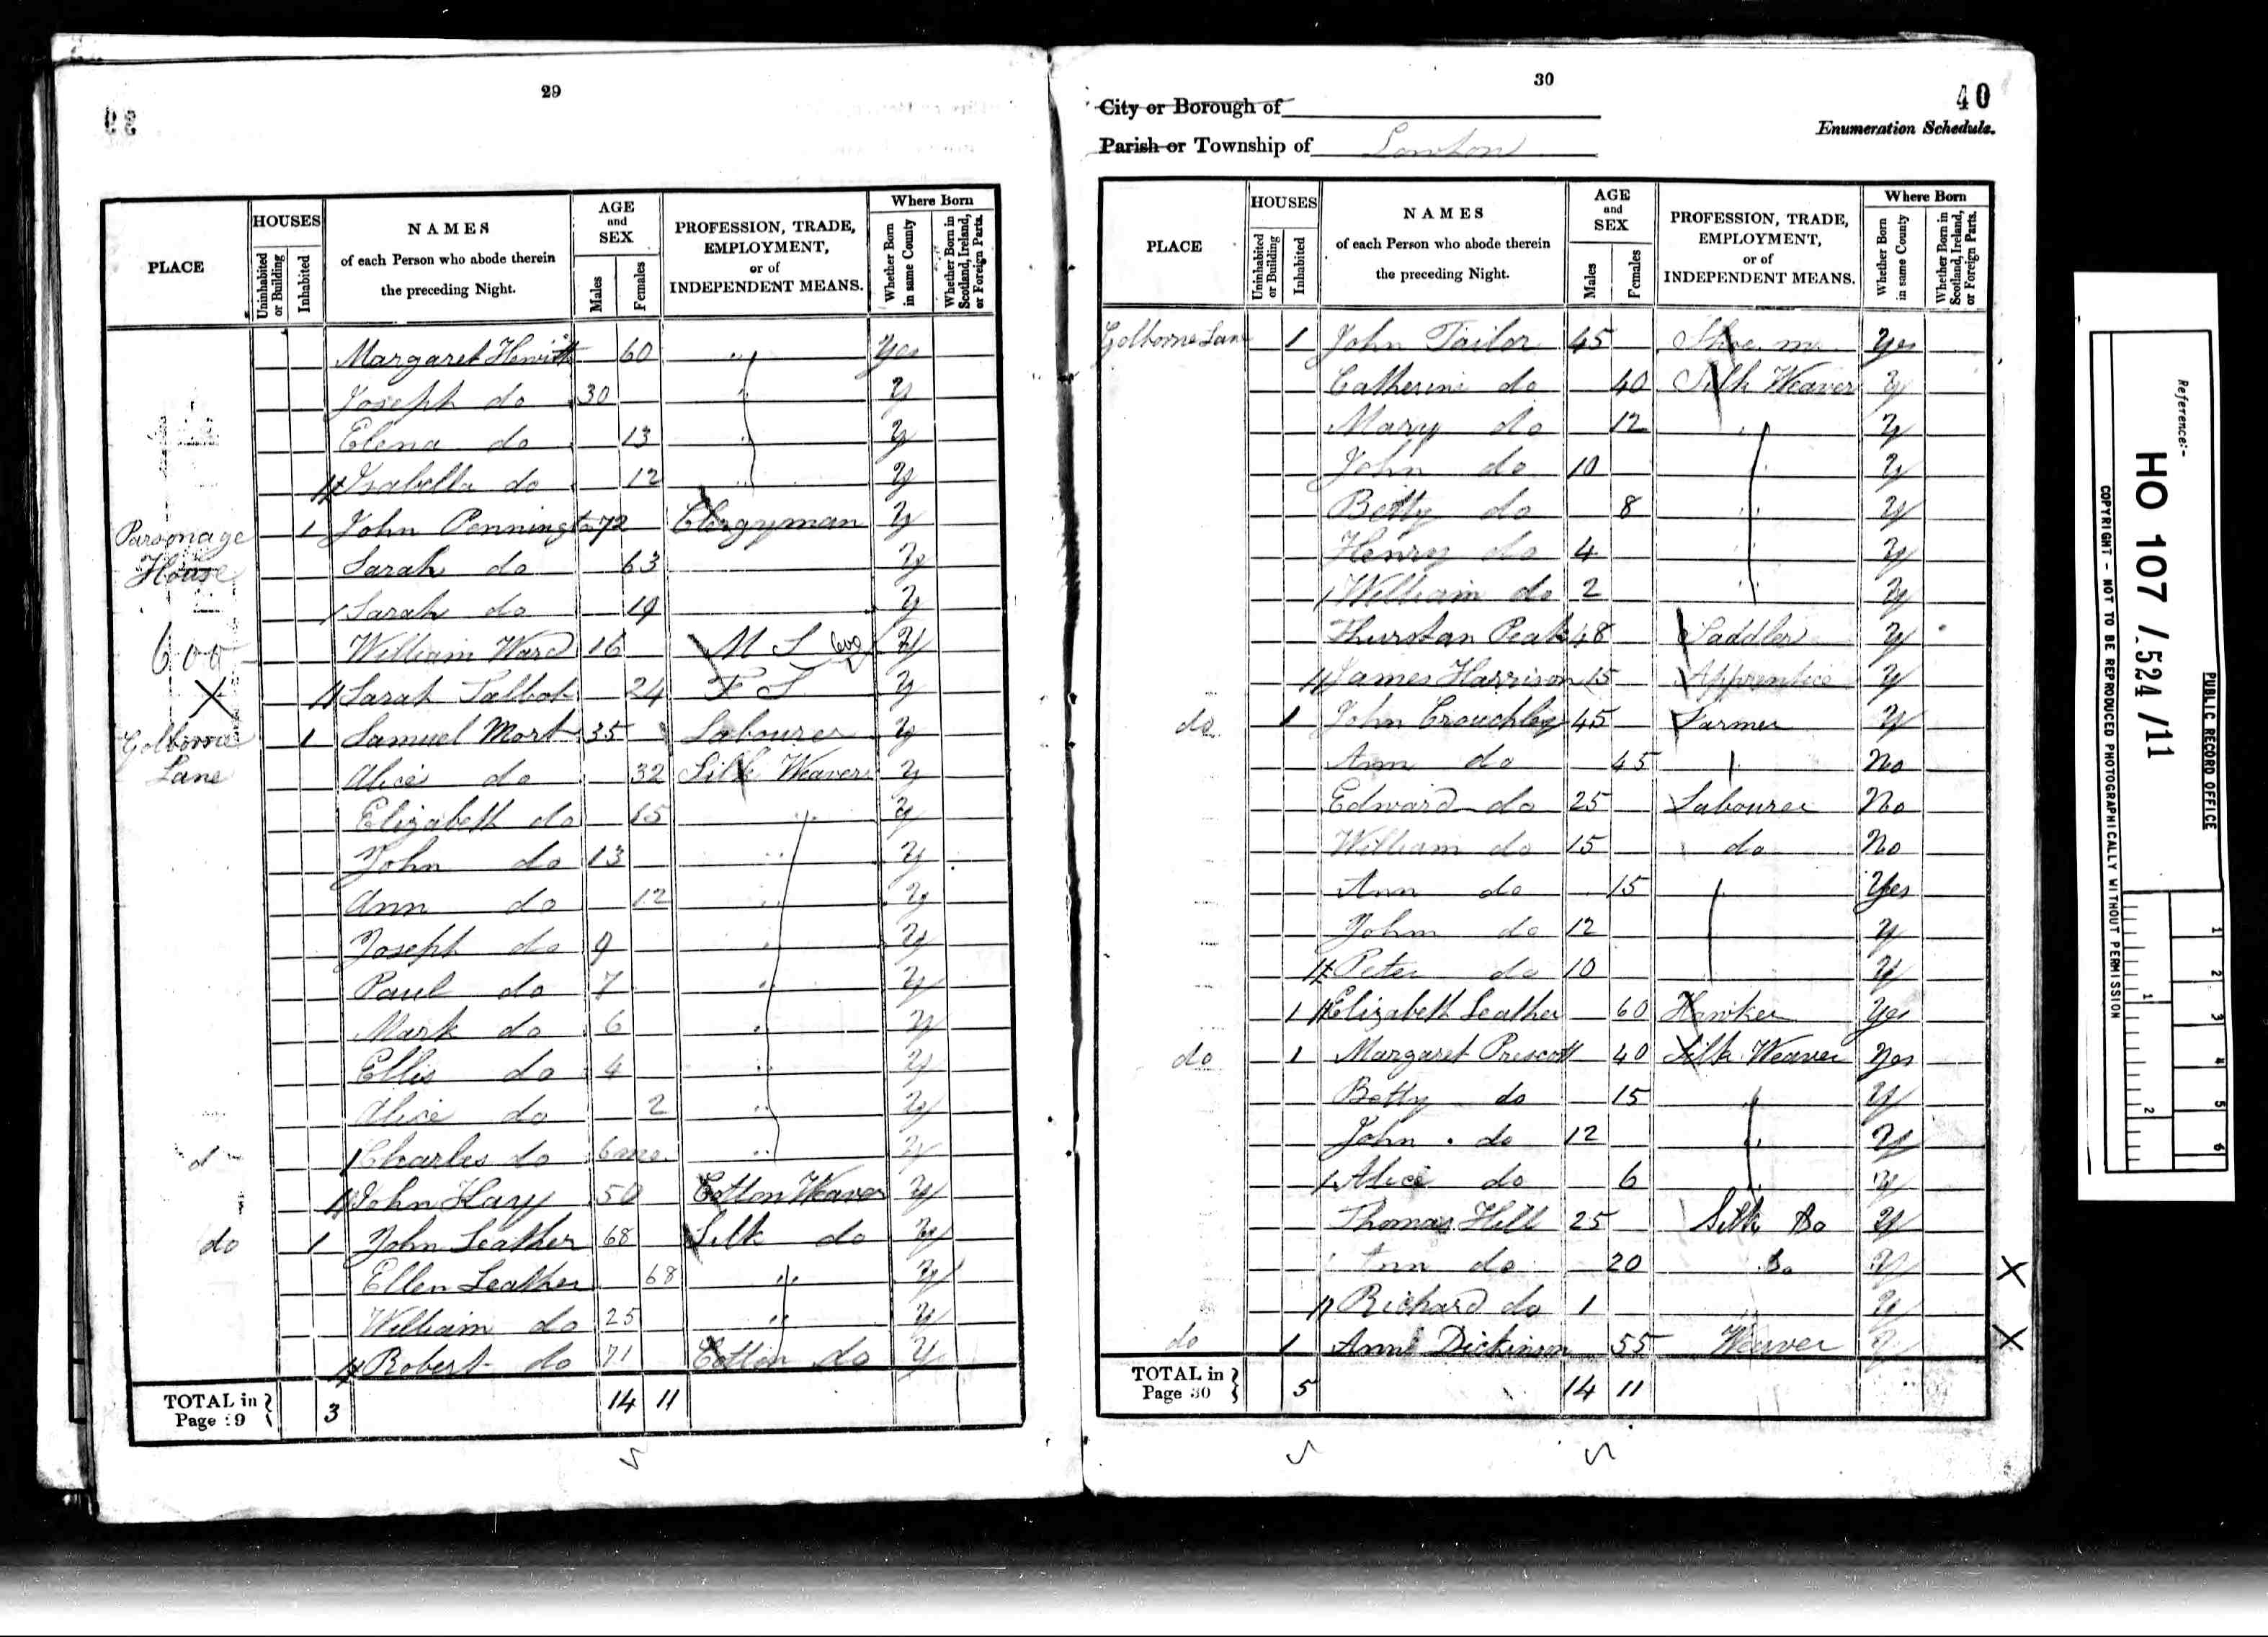 29
PLACE
HOUSES
Uninhabited or Building
Inhabited
NAMES
of each Person who abode therein
the preceding Night.
AGE
and
SEX
Males
Females
PROFESSION, TRADE,
EMPLOYMENT,
or of
INDEPENDENT MEANS.
Where Born
Whether Born in same County
Whether Born in Scotland, Ireland, or Foreign Parts.
Margaret Hewitt 60 Yes
Joseph do 30 Y
Elena do 13 Y
Isabella do 12 Y
Parsonage House 1 John Pennington 72 Clergyman Y
Sarah do 63 Y
Sarah do 19 Y
William Ward 16 M S Y
Sarah Talbot 24 F S Y
Golborne Lane 1 Samuel Mort 35 Labourer Y
Alice do 32 Silk Weaver Y
Elizabeth do 15 Y
John do 13 Y
Ann do 12 Y
Joseph do 9 Y
Paul do 7 Y
Mark do 6 Y
Ellis do 4 Y
Alice do 2 Y
Charles do 6 mo. Y
John Hay 50 Cotton Weaver Y
do 1 John Leather 68 Silk do Y
Ellen Leather 68 Y
William do 25 Y
Robert do 71 Cotton do Y
TOTAL in Page 29 3 14 11
30
City or Borough of
40
Enumeration Schedule.
Parish or Township of Lowton
PLACE
HOUSES
Uninhabited or Building
Inhabited
NAMES
of each Person who abode therein
the preceding Night.
AGE
and
SEX
Males
Females
PROFESSION, TRADE,
EMPLOYMENT,
or of
INDEPENDENT MEANS.
Where Born
Whether Born in same County
Whether Born in Scotland, Ireland, or Foreign Parts.
Golborne Lane 1 John Tailor 45 Shoe m Yes
Catherine do 40 Silk Weaver Y
Mary do 12 Y
John do 10 Y
Betty do 8 Y
Henry do 4 Y
William do 2 Y
Thurstan Peak 48 Saddler Y
James Harrison 15 Apprentice Y
do 1 John Crouchley 45 Farmer Y
Ann do 45 No
Edward do 25 Labourer No
William do 15 do No
Ann do 15 Yes
John do 12 Y
Peter do 10 Y
1 Elizabeth Leather 60 Hawker Yes
do 1 Margaret Prescott 40 Silk Weaver Yes
Betty do 15 Y
John do 12 Y
Alice do 6 Y
Thomas Hill 25 Silk Do Y
Ann do 20 Do Y
Richard do 1 Y
do 1 Ann Dickinson 55 Weaver Y
TOTAL in Page 30 5 14 11
Reference:-
HO 107 / 524 / 11
PUBLIC RECORD OFFICE
COPYRIGHT - NOT TO BE REPRODUCED PHOTOGRAPHICALLY WITHOUT PERMISSION
1
2
1
2
3
4
5
6